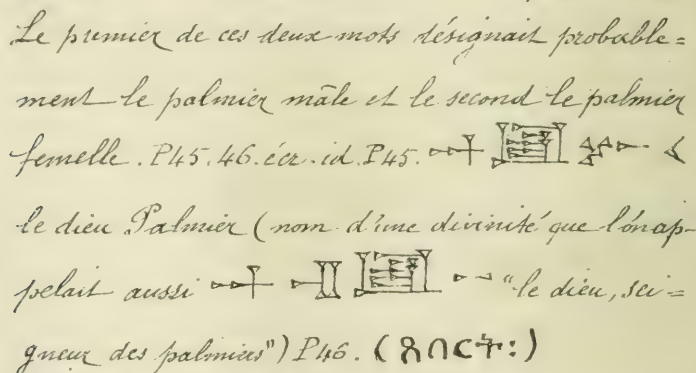 Le premier de ces deux mots désignait probable=
ment le palmier mâle et le second le palmier
femelle. P45.46. écr. id. P45. 𒀭
le dieu Palmier (nom d'une divinité que l'on ap-
pelait aussi 𒀭 𒂗 "le dieu, sei=
gneur des palmiers") P46. (ጸበርት፡)